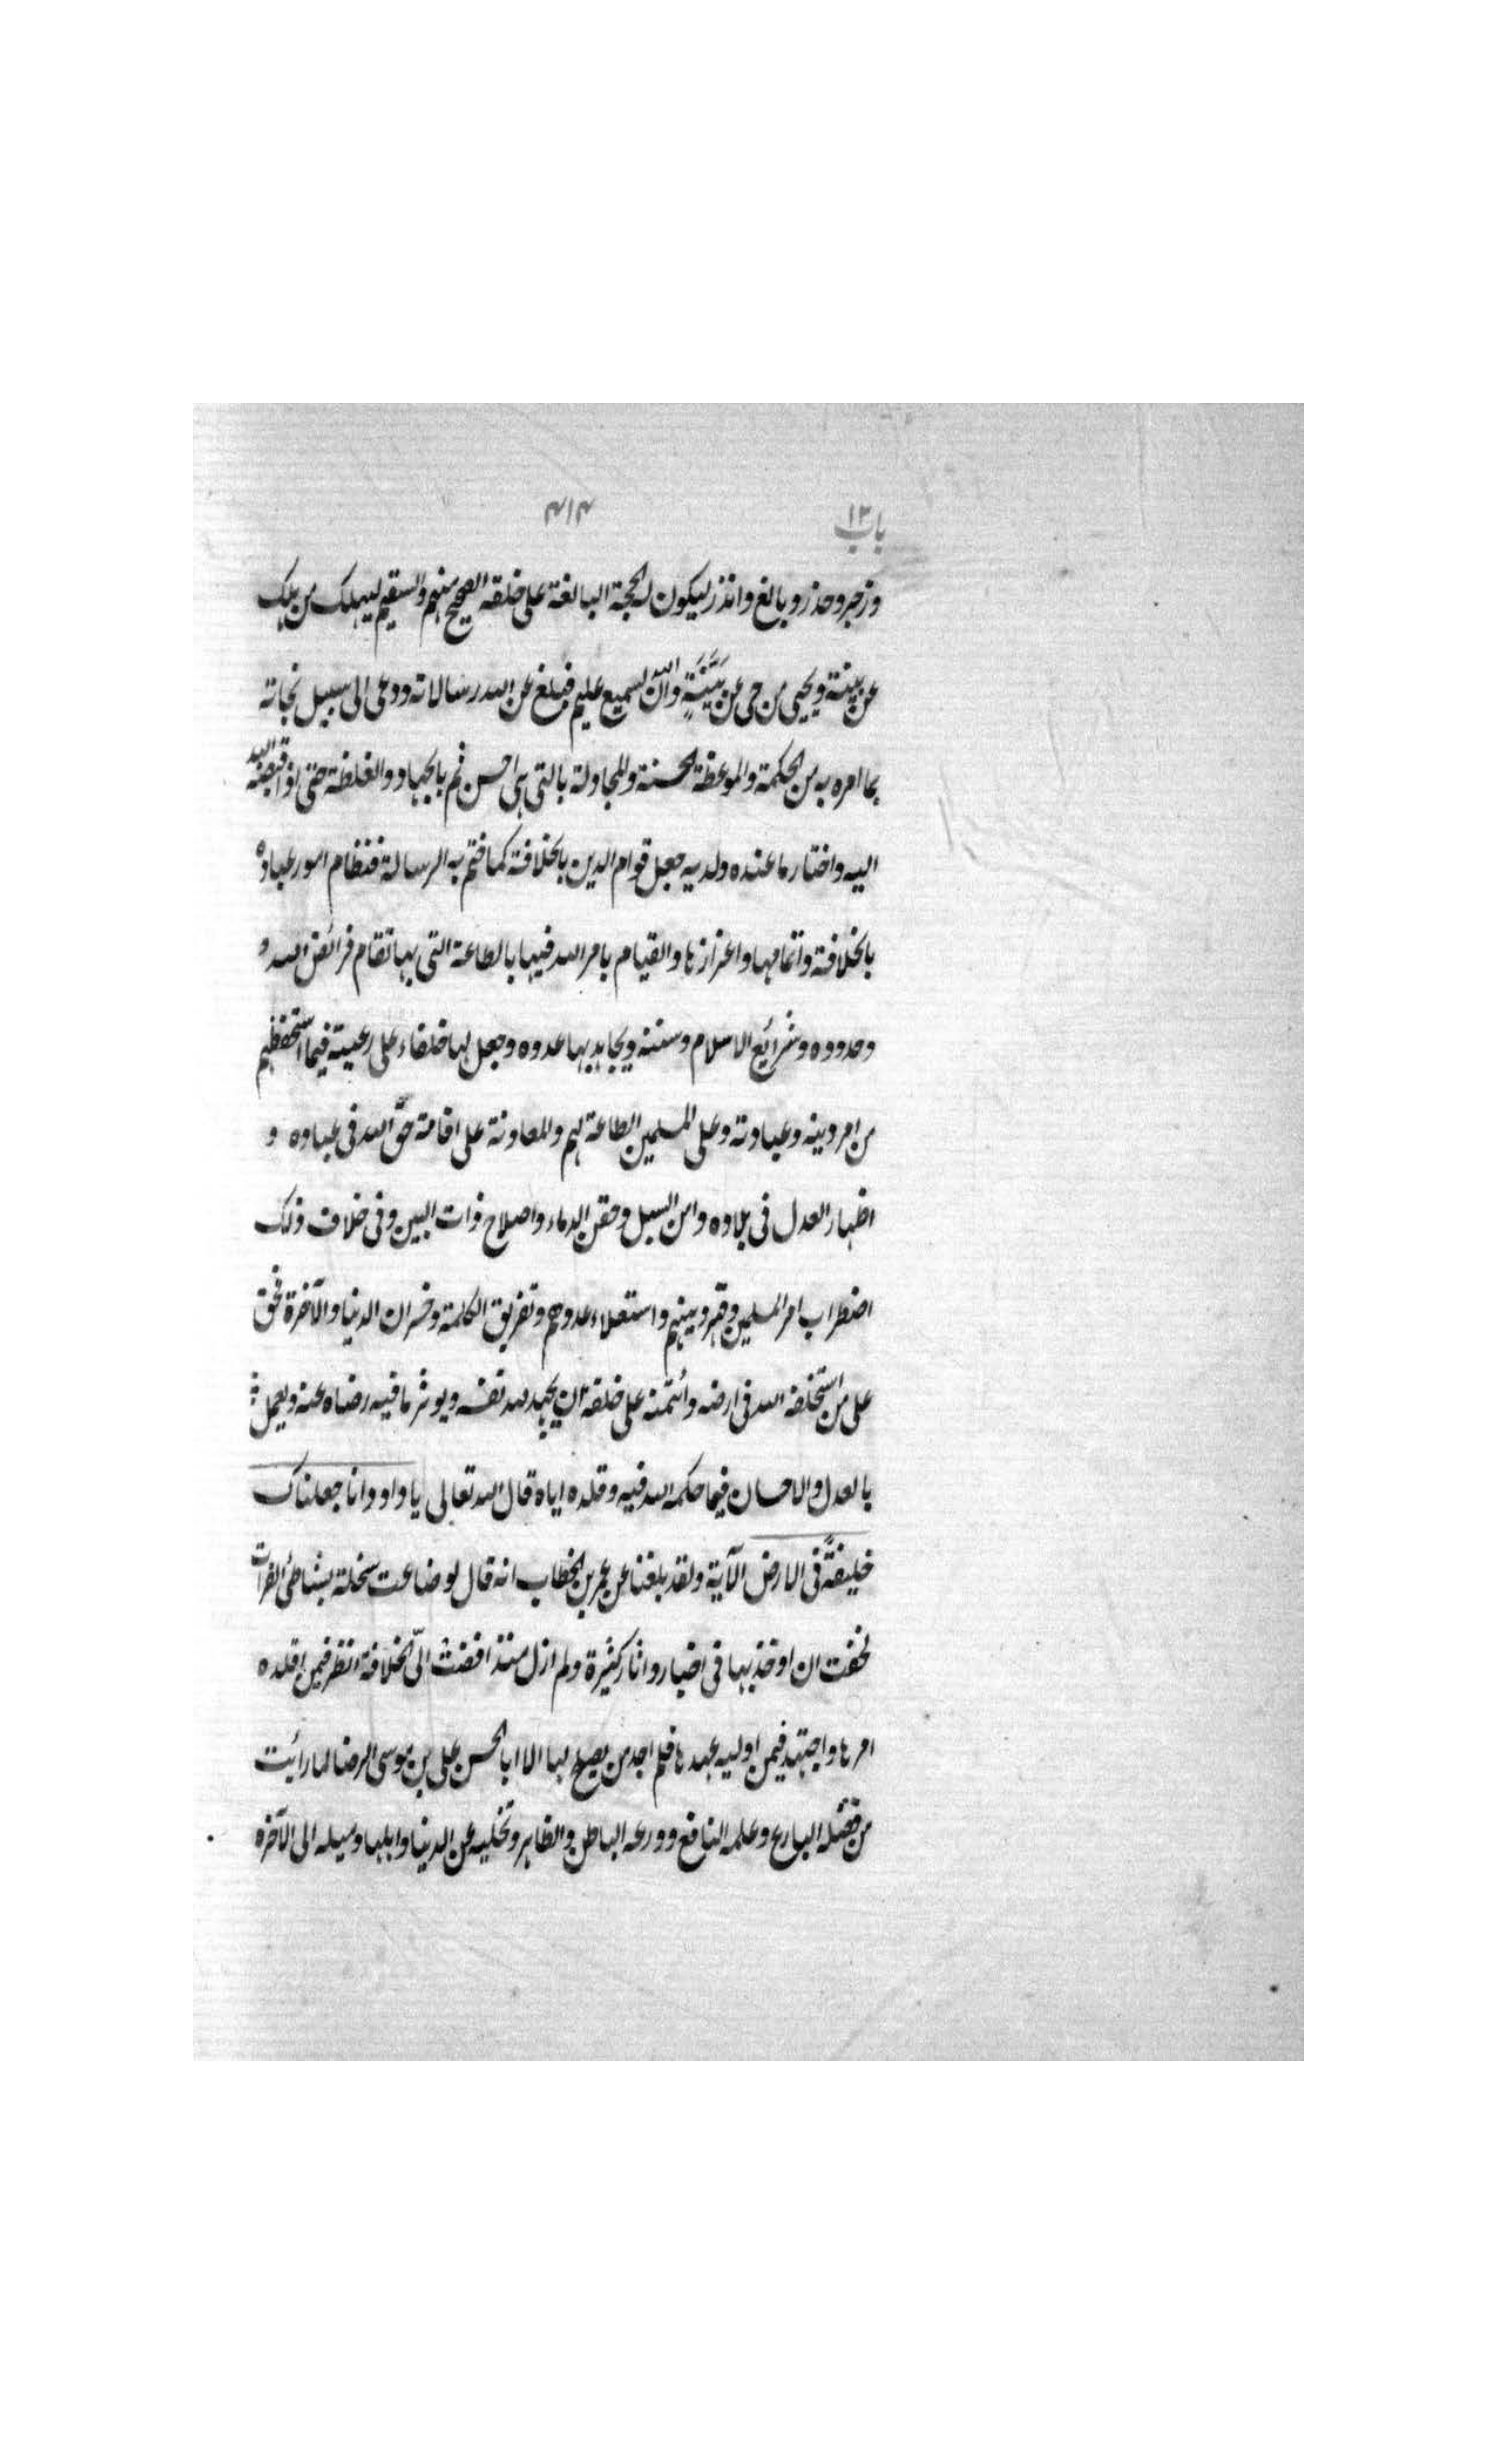 باب ۱۲
۴۱۴
وزجر وحذر وبالغ وانذر ليكون له الحجة البالغة على خلقه الصحيح منهم والسقيم ليهلك من هلك
عن بينة ويحيى من حى عن بَيِّنَةٍ وانّ الله لسميع عليم فبلغ عن الله رسالاته ودعى الى سبيل نجاته
بما امره به من الحكمة والموعظة الحسنة والمجادلة بالتى هى احسن ثم بالجهاد والغلظة حتى اذا قبضه الله
اليه واختار ما عنده ولديه جعل قوام الدين بالخلافة كما ختم به الرسالة فنظام امور عباده
بالخلافة واتمامها واعزازها والقيام بامر الله فيها بالطاعة التى بها تقام فرائض الله و
وحدوده وشرائع الاسلام وسننه ويجاهد بها عدوه وجعل لها خلفاء على رعيته فيما استحفظهم
من امر دينه وعبادته وعلى المسلمين الطاعة لهم والمعاونة على اقامة حقّ الله فى عباده و
اظهار العدل فى بلاده وامن السبل وحقن الدماء واصلاح ذات البين وفى خلاف ذلك
اضطراب امر المسلمين وقهر دينهم واستعلاء عدوهم وتفريق الكلمة وخسران الدنيا والآخرة فحق
على من استخلفه الله فى ارضه وائتمنه على خلقه ان يجهد لله نفسه ويوثر ما فيه رضاه عنه ويعمل
بالعدل والاحسان فيما حكمه الله فيه وقلده اياه قال الله تعالى يا داود انا جعلناك
خليفةً فى الارض الآية ولقد بلغنا عن عمر بن الخطاب انه قال لو ضاعت سخلة بشاطئ الفرات
لخفت ان اوخذ بها فى اخبار واثار كثيرة ولم ازل منذ افضت الىّ الخلافة انظر فيمن اقلده
امرها واجتهد فيمن اوليه عهدها فلم اجد من يصلح لها الا ابا الحسن على بن موسى الرضا لما رائت
من فضله البارع وعلمه النافع وورعه الباطن والظاهر وتخليه عن الدنيا واهلها وميله الى الآخرة